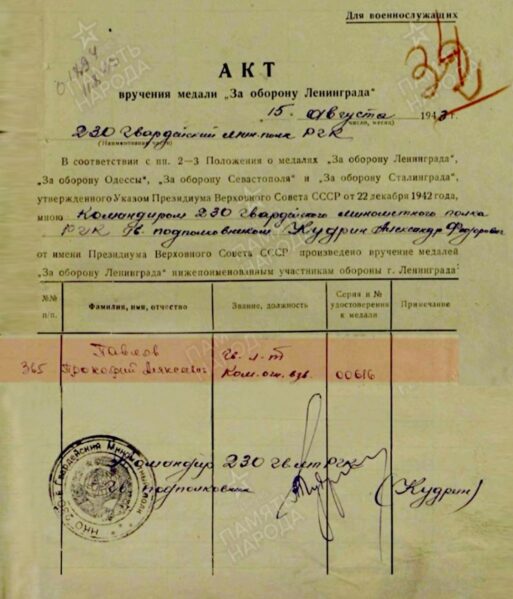 Для военнослужащих
АКТ
вручения медали „За оборону Ленинграда“
15 августа 1943 г.
(число, месяц)
230 Гвардейский мин. полк РГК
(Наименование части)
В соответствии с пп. 2—3 Положения о медалях „За оборону Ленинграда“,
„За оборону Одессы“, „За оборону Севастополя“ и „За оборону Сталинграда“,
утвержденного Указом Президиума Верховного Совета СССР от 22 декабря 1942 года,
мною Командиром 230 Гвардейского минометного полка
РГК гв. подполковником Кудрин Александр Федорович
от имени Президиума Верховного Совета СССР произведено вручение медалей
„За оборону Ленинграда“ нижепоименованным участникам обороны г. Ленинграда:
№№ п/п. Фамилия, имя, отчество Звание, должность Серия и № удостоверения к медали Примечание
365 Павлов Прокофий гв. л-т Ком. ог. взв. 00616
Командир 230 гв. мп РГК
гв. подполковник (Кудрин)
ПАМЯТЬ НАРОДА